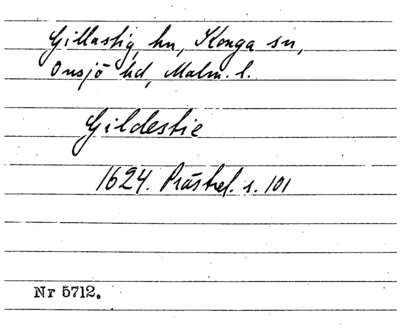 Gillastig, hn, Konga sn,
Onsjö hd, Malm. l.
Gildestie
1624. Prästrel. s. 101
Nr 5712.